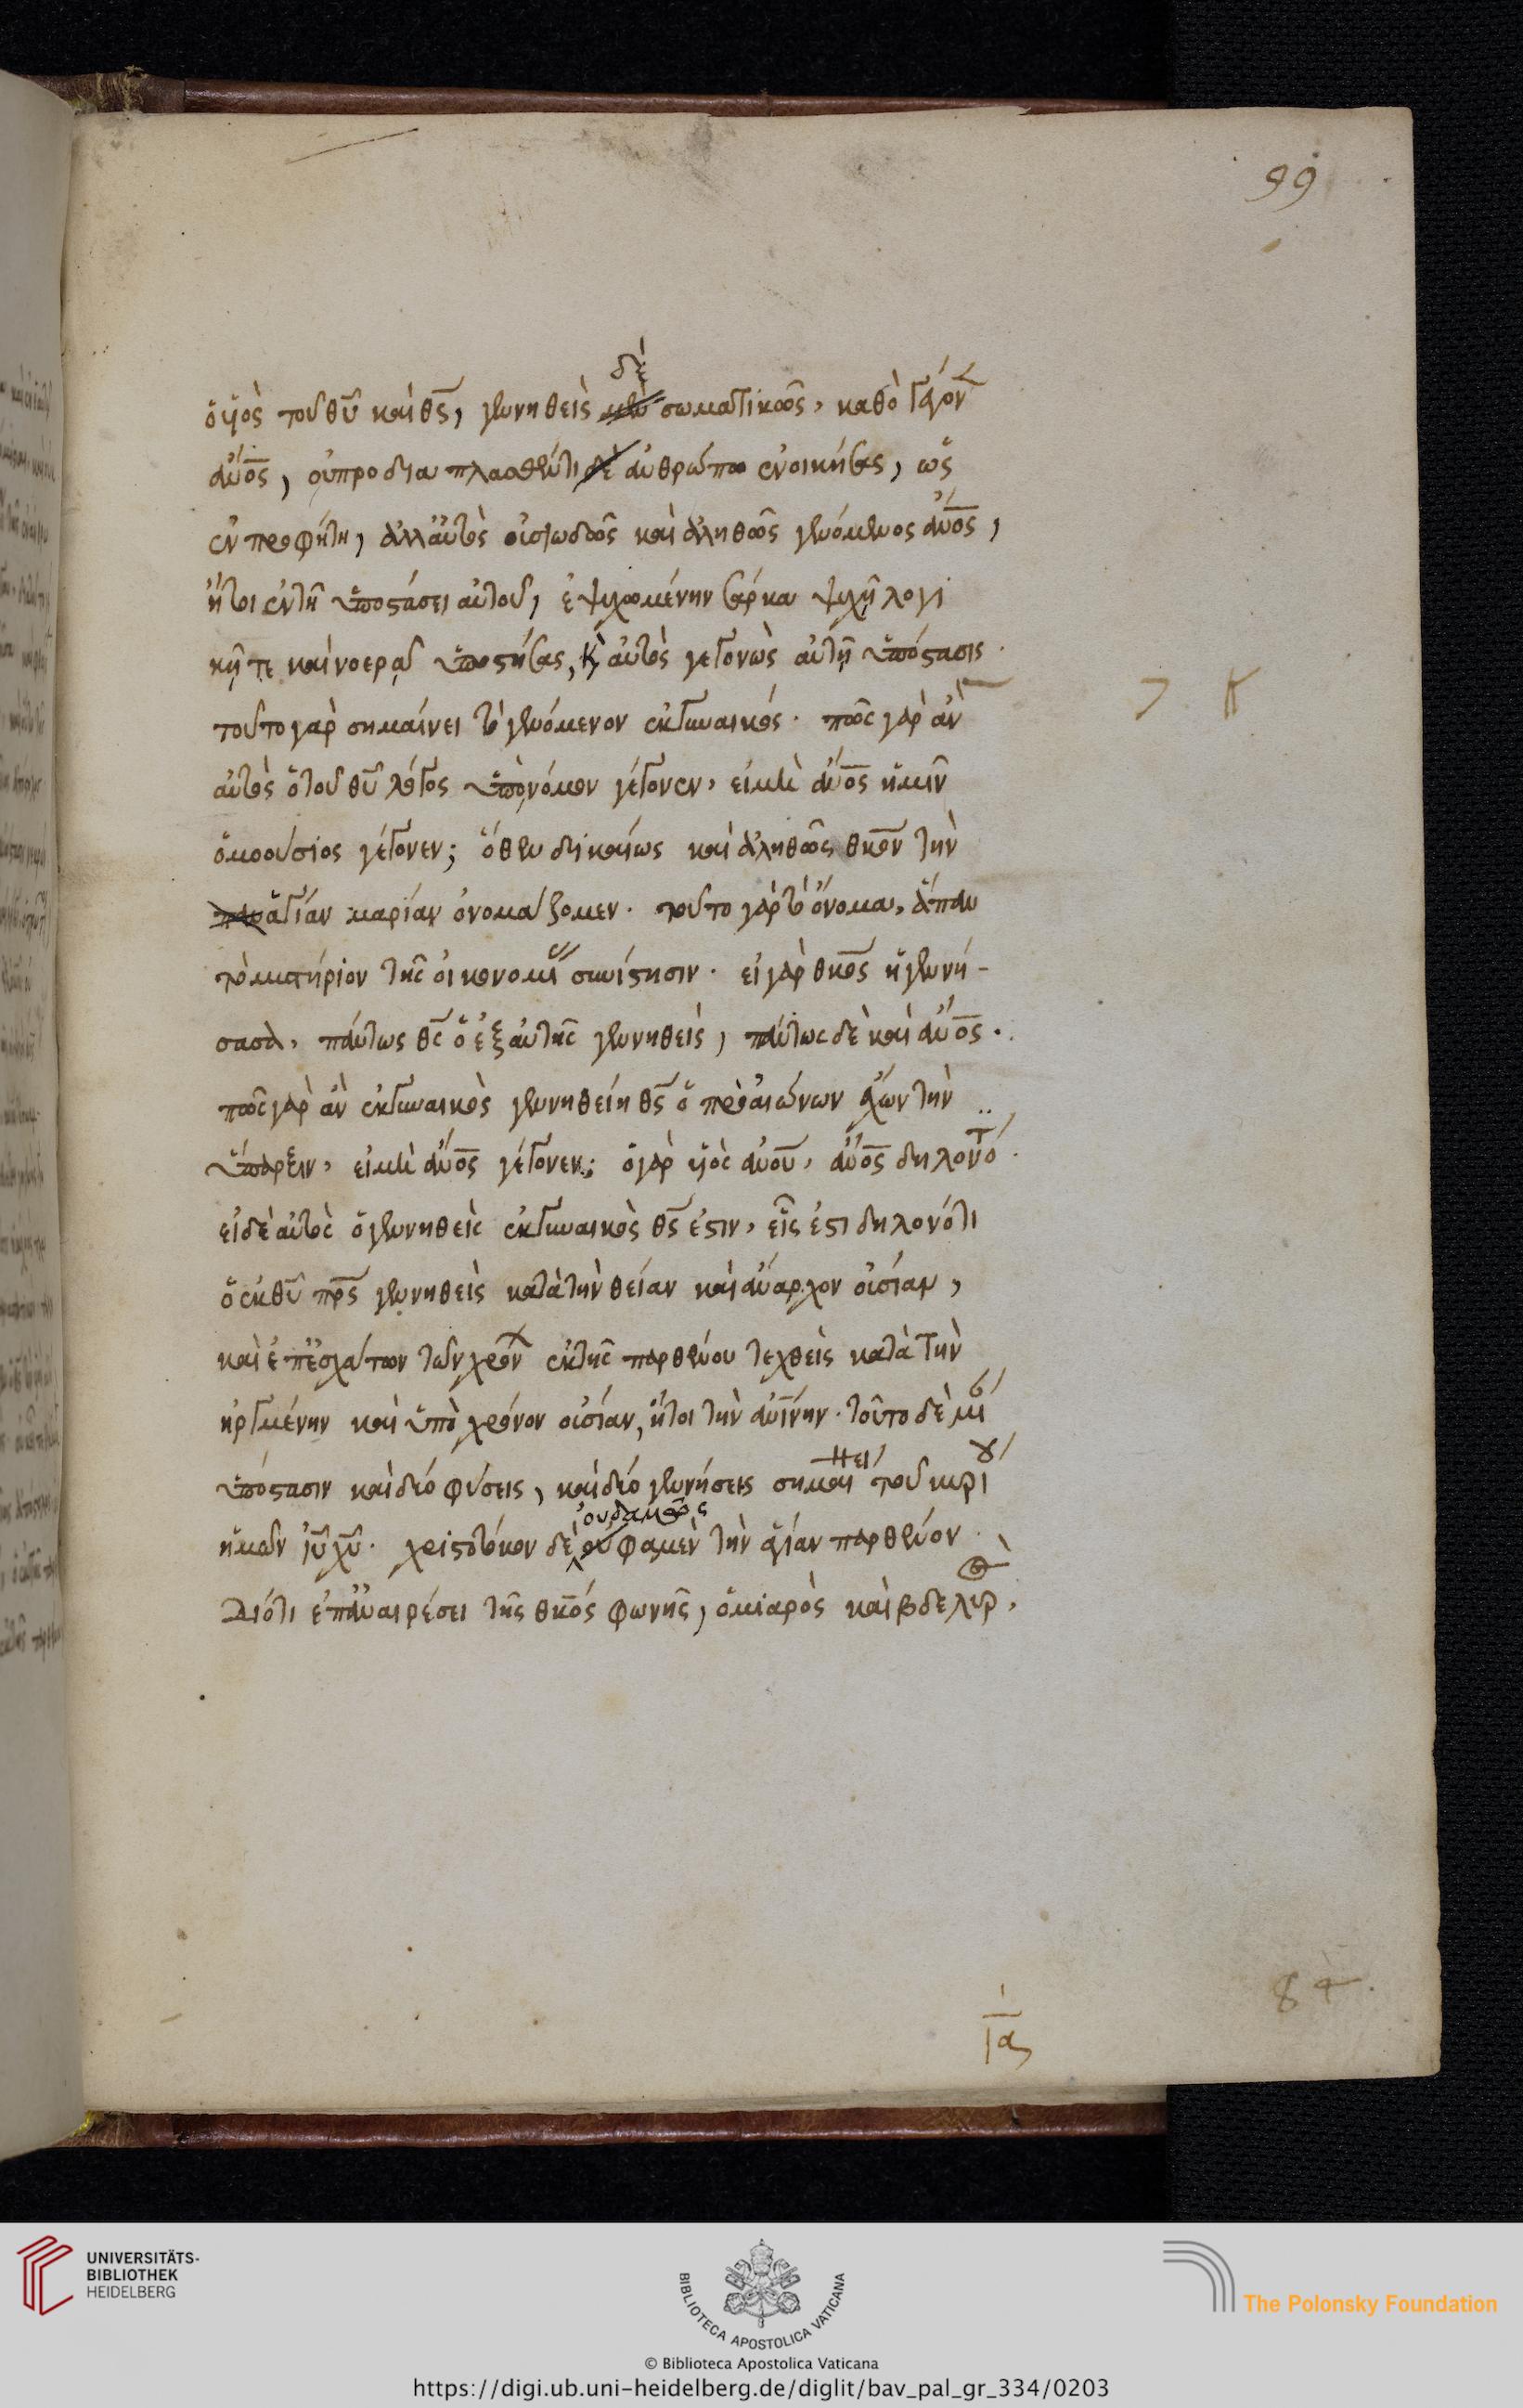 99
δὲ
ὁ υἱὸς τοῦ θῡ καὶ θς̄, γεννηθεὶς μὲν σωματικῶς, καθὸ γέγον
ἄνος̄, οὐ προδιαπλασθέντι δὲ ἀνθρώπω ἐνοικήσας, ὡς
ἐν προφήτη, ἀλλ' αὐτὸς οὐσιωδῶς καὶ ἀληθῶς γενόμενος ἄνος̄,
ἤτοι ἐν τῆ ὑποστάσει αὐτοῦ, ἐψυχωμένην σάρκα ψυχῆ λογι
κῆ τε καὶ νοερᾶ ὑποστήσας, κ̀ αὐτὸς γεγονὼς αὐτῆ ὑπόστασις.
τοῦτο γὰρ σημαίνει τὸ γενόμενον ἐκ γυναικός. πῶς γὰρ ἂν
αὐτὸς ὁ τοῦ θῡ λόγος ὑπὸ νόμον γέγονεν, εἰ μὴ ἄνος̄ ἡμῖν
ὁμοούσιος γέγονεν; ὅθεν δικαίως καὶ ἀληθῶς θκο̄ν τὴν
παναγίαν μαρίαν ὀνομάζομεν. τοῦτο γὰρ τὸ ὄνομα, ἅπαν
τὸ μυστήριον τῆς οἰκονομί συνίστησιν. εἰ γὰρ θκο̄ς ἡ γεννή-
σασα, πάντως θς̄ ὁ ἐξ αὐτῆς γεννηθεὶς, πάντως δὲ καὶ ἄνος̄.
πῶς γὰρ ἂν ἐκ γυναικὸς γεννηθείη θς̄ ὁ πρὸ αἰώνων ἔχων τὴν
ὕπαρξιν, εἰ μὴ ἄνος̄ γέγονεν; ὁ γὰρ υἱὸς ἀνοῡ, ἄνος̄ δηλονό τ
εἰ δὲ αὐτὸς ὁ γεννηθεὶς ἐκ γυναικὸς θς̄ ἐστιν, εἷς ἐστι δηλονότι
ὁ ἐκ θῡ πρς̄ γεννηθεὶς κατὰ τὴν θείαν καὶ ἄναρχον οὐσίαν,
καὶ ἐπ' ἐσχάτων τῶν χρόν ἐκ τῆς παρθένου τεχθεὶς κατὰ τὴν
ἠργμένην καὶ ὑπὸ χρόνον οὐσίαν, ἤτοι τὴν ἀνίνην. τοῦτο δὲ μί
ὑπόστασιν καὶ δύο φύσεις, καὶ δύο γεννήσεις σημαί τοῦ κυρί
οὐδαμῶς
ἡμῶν ιῡ χῡ. χριστοτόκον δὲ οὔ φαμεν τὴν ἁγίαν παρθένον
Διότι ἐπ' ἀναιρέσει τῆς θκο̄ς φωνῆς, ὁ μιαρὸς καὶ βδελυρ
84
ια
UNIVERSITÄTS-
BIBLIOTHEK
HEIDELBERG
BIBLIOTECA APOSTOLICA VATICANA
The Polonsky Foundation
© Biblioteca Apostolica Vaticana
https://digi.ub.uni-heidelberg.de/diglit/bav_pal_gr_334/0203